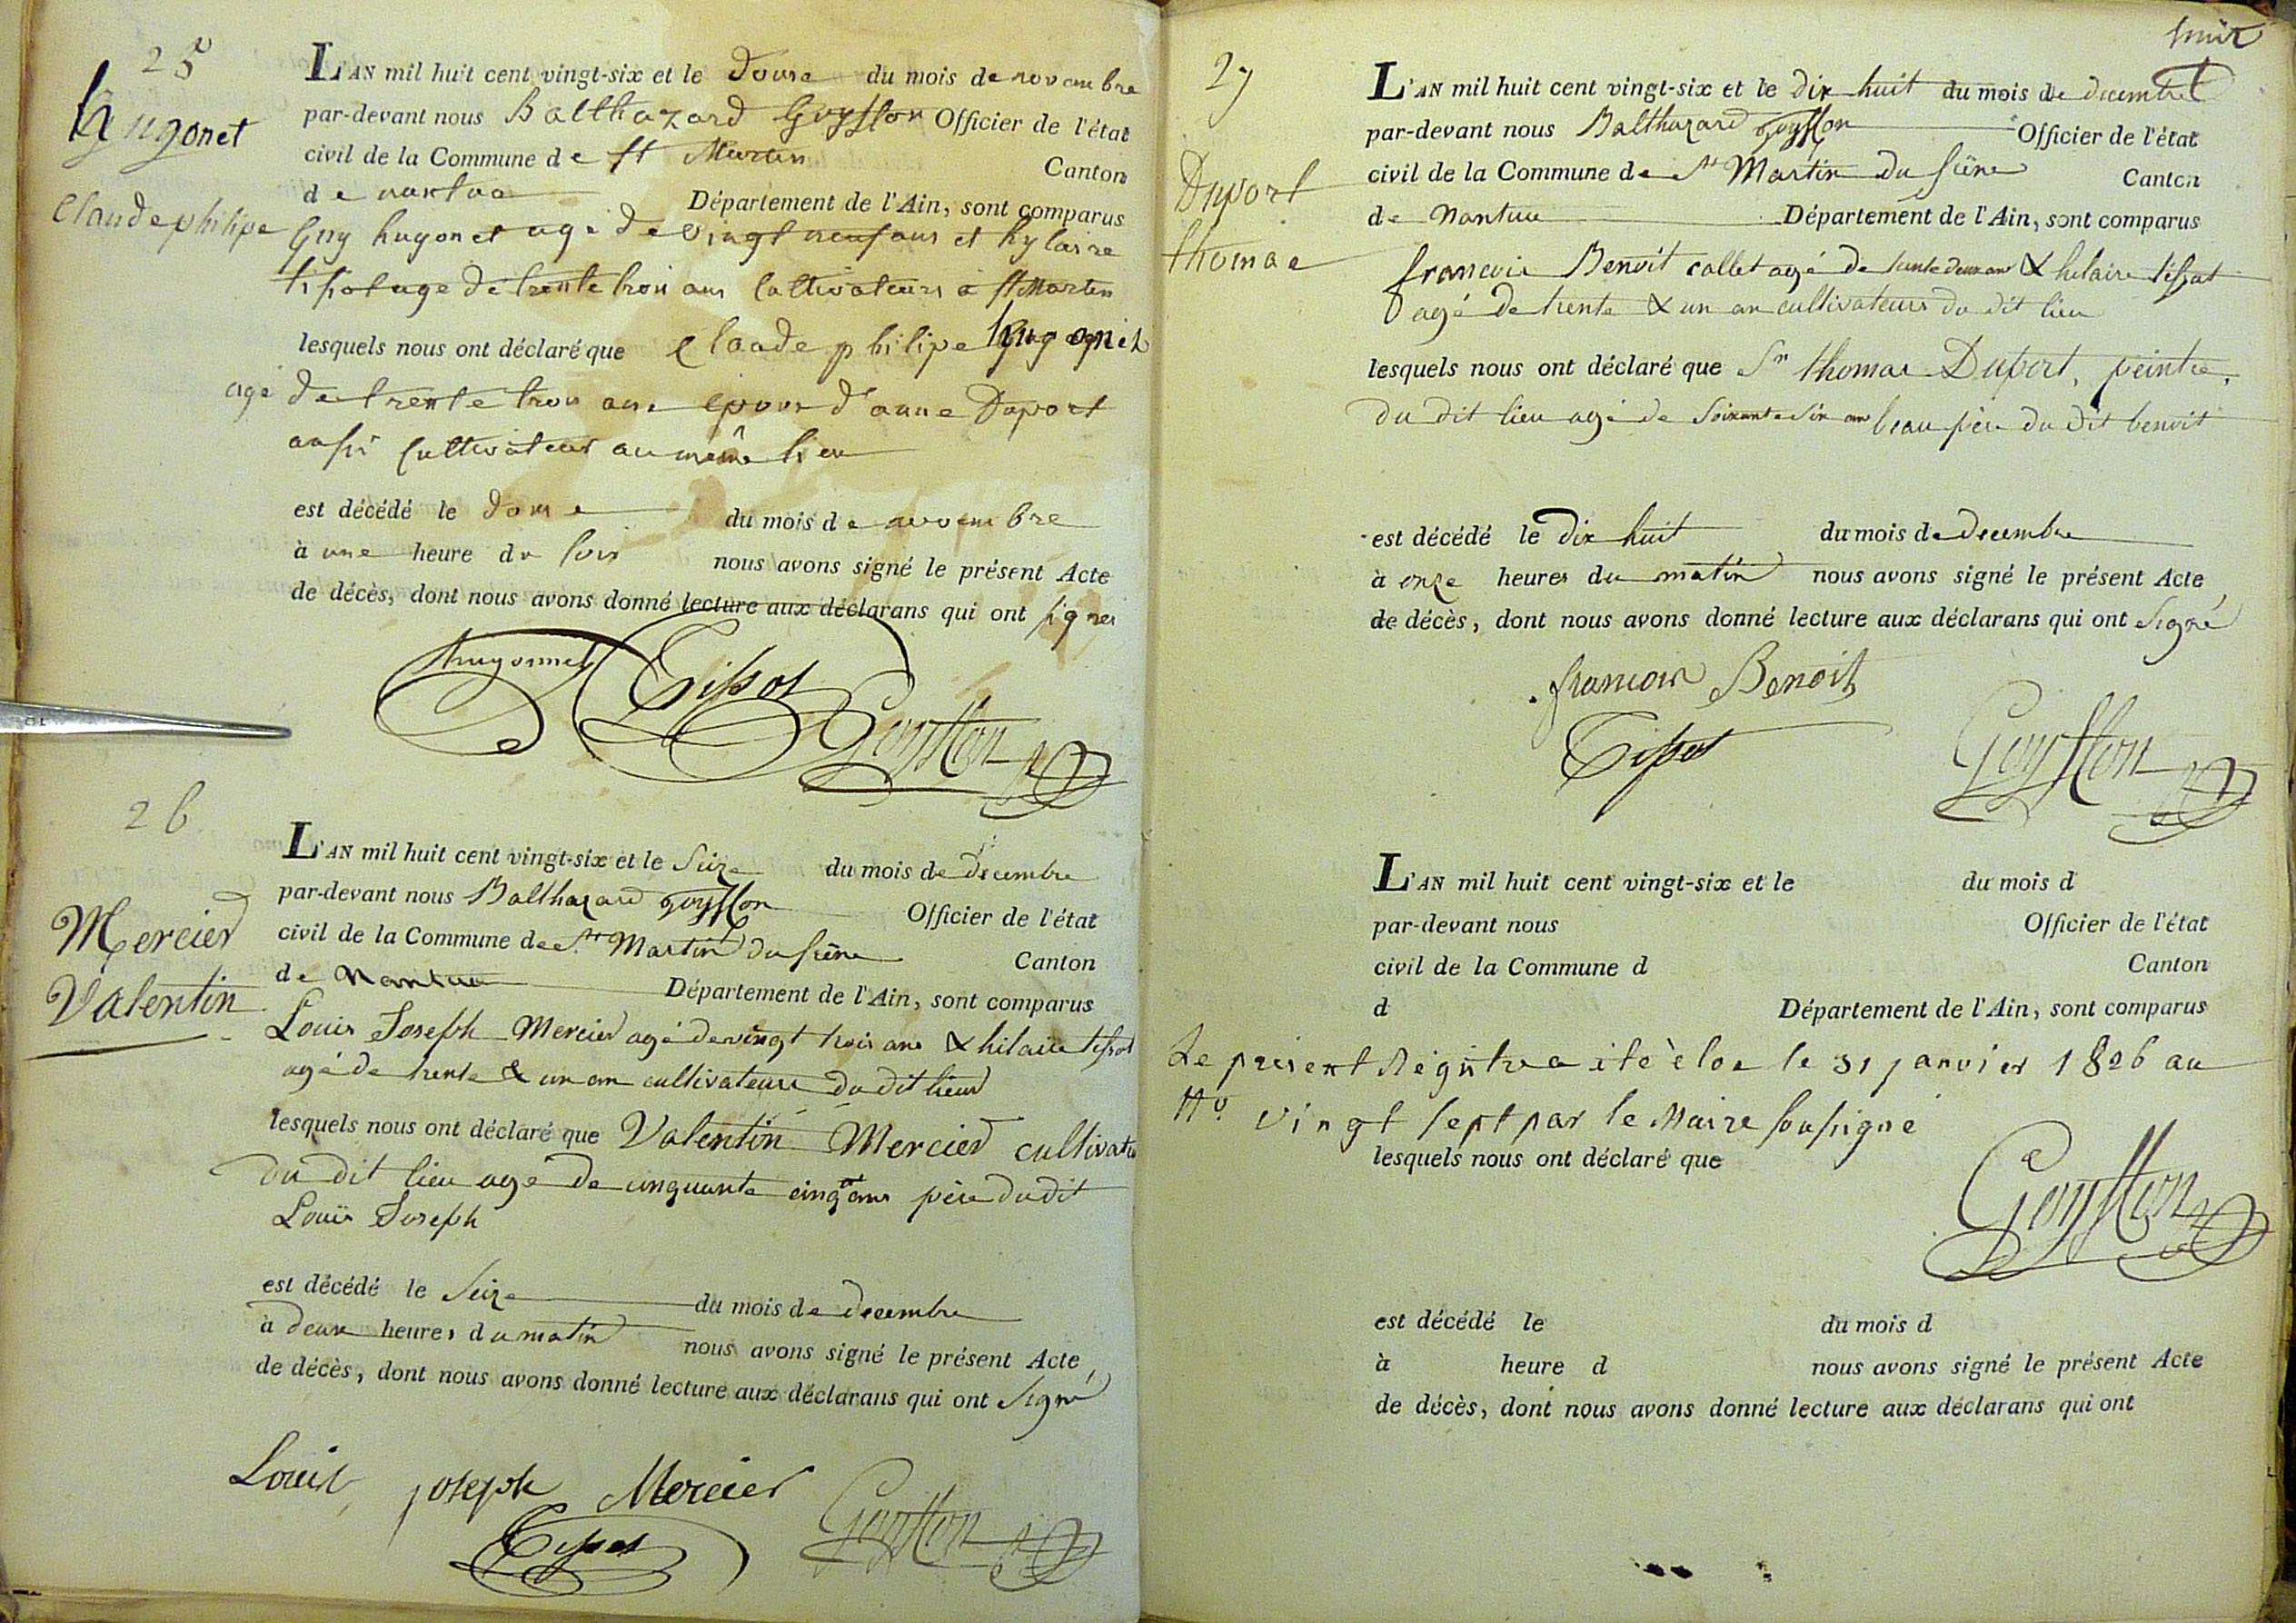 25
hugonet
Claude philipe
L'AN mil huit cent vingt-six et le douse du mois de novembre
par-devant nous Balthazard Goyffon Officier de l'état
civil de la Commune de st Martin Canton
de nantua Département de l'Ain, sont comparus
Guy hugonet age de vingt neuf ans et hylaire
tissot age de trente trois ans Cultivateurs a st Martin
lesquels nous ont déclaré que Claude philipe hugonet
agé de trente trois ans epoux d'anne Duport
aussi Cultivateur au même lieu
est décédé le douse du mois de novembre
à une heure du soir nous avons signé le présent Acte
de décès, dont nous avons donné lecture aux déclarans qui ont signes
hugonnet Tissot Goyffon
26
Mercier
Valentin
L'AN mil huit cent vingt-six et le Seize du mois de decembre
par-devant nous Balthazard goyffon Officier de l'état
civil de la Commune de St Martin du frêne Canton
de Nantua Département de l'Ain, sont comparus
Louis Joseph Mercier agé de vingt trois ans & hilaire tissot
agé de trente & un an cultivateurs du dit lieu
lesquels nous ont déclaré que Valentin Mercier cultivateur
du dit lieu agé de cinquante cinq ans père dudit
Louis Joseph
est décédé le Seize du mois de decembre
à deux heures du matin nous avons signé le présent Acte
de décès, dont nous avons donné lecture aux déclarans qui ont signé
Louis joseph Mercier
Tissot Goyffon
huit
27
Duport
thomas
L'AN mil huit cent vingt-six et le dix huit du mois de decembre
par-devant nous Balthazard goyffon Officier de l'état
civil de la Commune de St Martin du frêne Canton
de Nantua Département de l'Ain, sont comparus
francois Benoit collet agé de trente deux ans & hilaire tissot
agé de trente & un an cultivateurs du dit lieu
lesquels nous ont déclaré que Sr thomas Duport, peintre,
du dit lieu agé de soixante six ans beau père du dit benoit
est décédé le dix huit du mois de decembre
à onze heures du matin nous avons signé le présent Acte
de décès, dont nous avons donné lecture aux déclarans qui ont signé
francois Benoit
Tissot Goyffon
L'AN mil huit cent vingt-six et le du mois d
par-devant nous Officier de l'état
civil de la Commune d Canton
d Département de l'Ain, sont comparus
Le present Registre a été clos le 31 janvier 1826 au
No. vingt sept par le Maire soussigné
lesquels nous ont déclaré que
Goyffon
est décédé le du mois d
à heure d nous avons signé le présent Acte
de décès, dont nous avons donné lecture aux déclarans qui ont